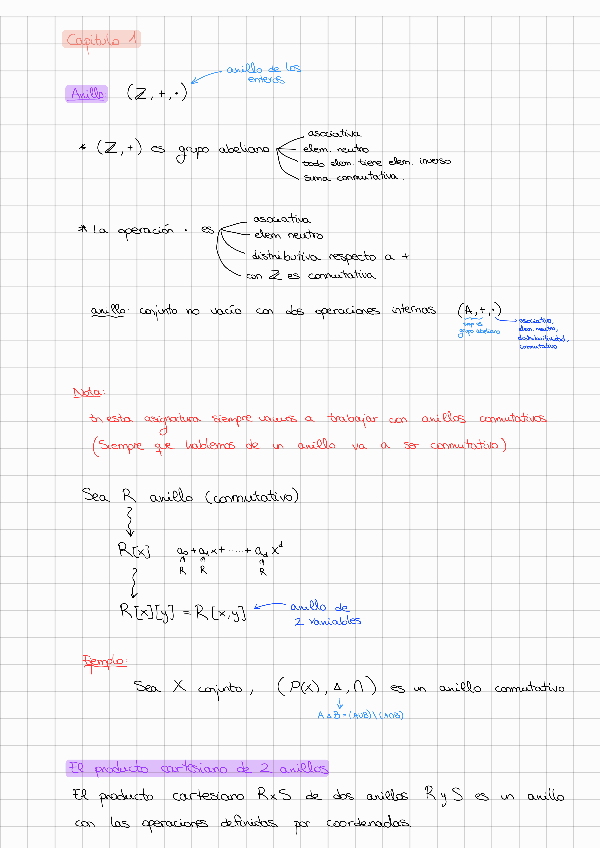 Capítulo 1
anillo de los
enteros
Anillo (ℤ, +, ·)
asociativa
* (ℤ, +) es grupo abeliano elem. neutro
todo elem. tiene elem. inverso
suma conmutativa.
asociativa
* La operación · es elem neutro
distributiva respecto a +
con ℤ es conmutativa
anillo: conjunto no vacío con dos operaciones internas (A, +, ·)
grupo abeliano
asociativa,
elem. neutro,
distributividad,
conmutativo
Nota:
En esta asignatura siempre vamos a trabajar con anillos conmutativos
(Siempre que hablemos de un anillo va a ser conmutativo)
Sea R anillo (conmutativo)
R[x] a₀+a₁x+.....+a_d x^d
R R R
R[x][y] = R[x,y] anillo de
2 variables
Ejemplo:
Sea X conjunto, (P(X), Δ, ∩) es un anillo conmutativo
A Δ B = (A∪B) \ (A∩B)
El producto cartesiano de 2 anillos
El producto cartesiano R×S de dos anillos R y S es un anillo
con las operaciones definidas por coordenadas.